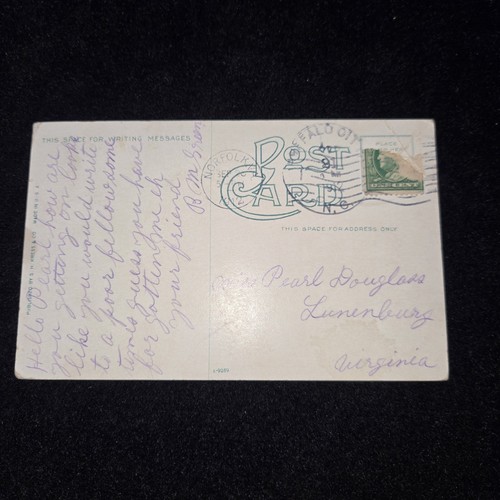 THIS SPACE FOR WRITING MESSAGES
Hello Pearl how are
you getting on looks
like you would write
to a poor fellow some
times guess you have
for gotten me h
your friend
R M Green
POST
CARD
THIS SPACE FOR ADDRESS ONLY
Miss Pearl Douglass
Lunenburg
Virginia
BUFFALO CITY
N.C.
NORFOLK
PLACE
ONE CENT
MADE IN U.S.A.